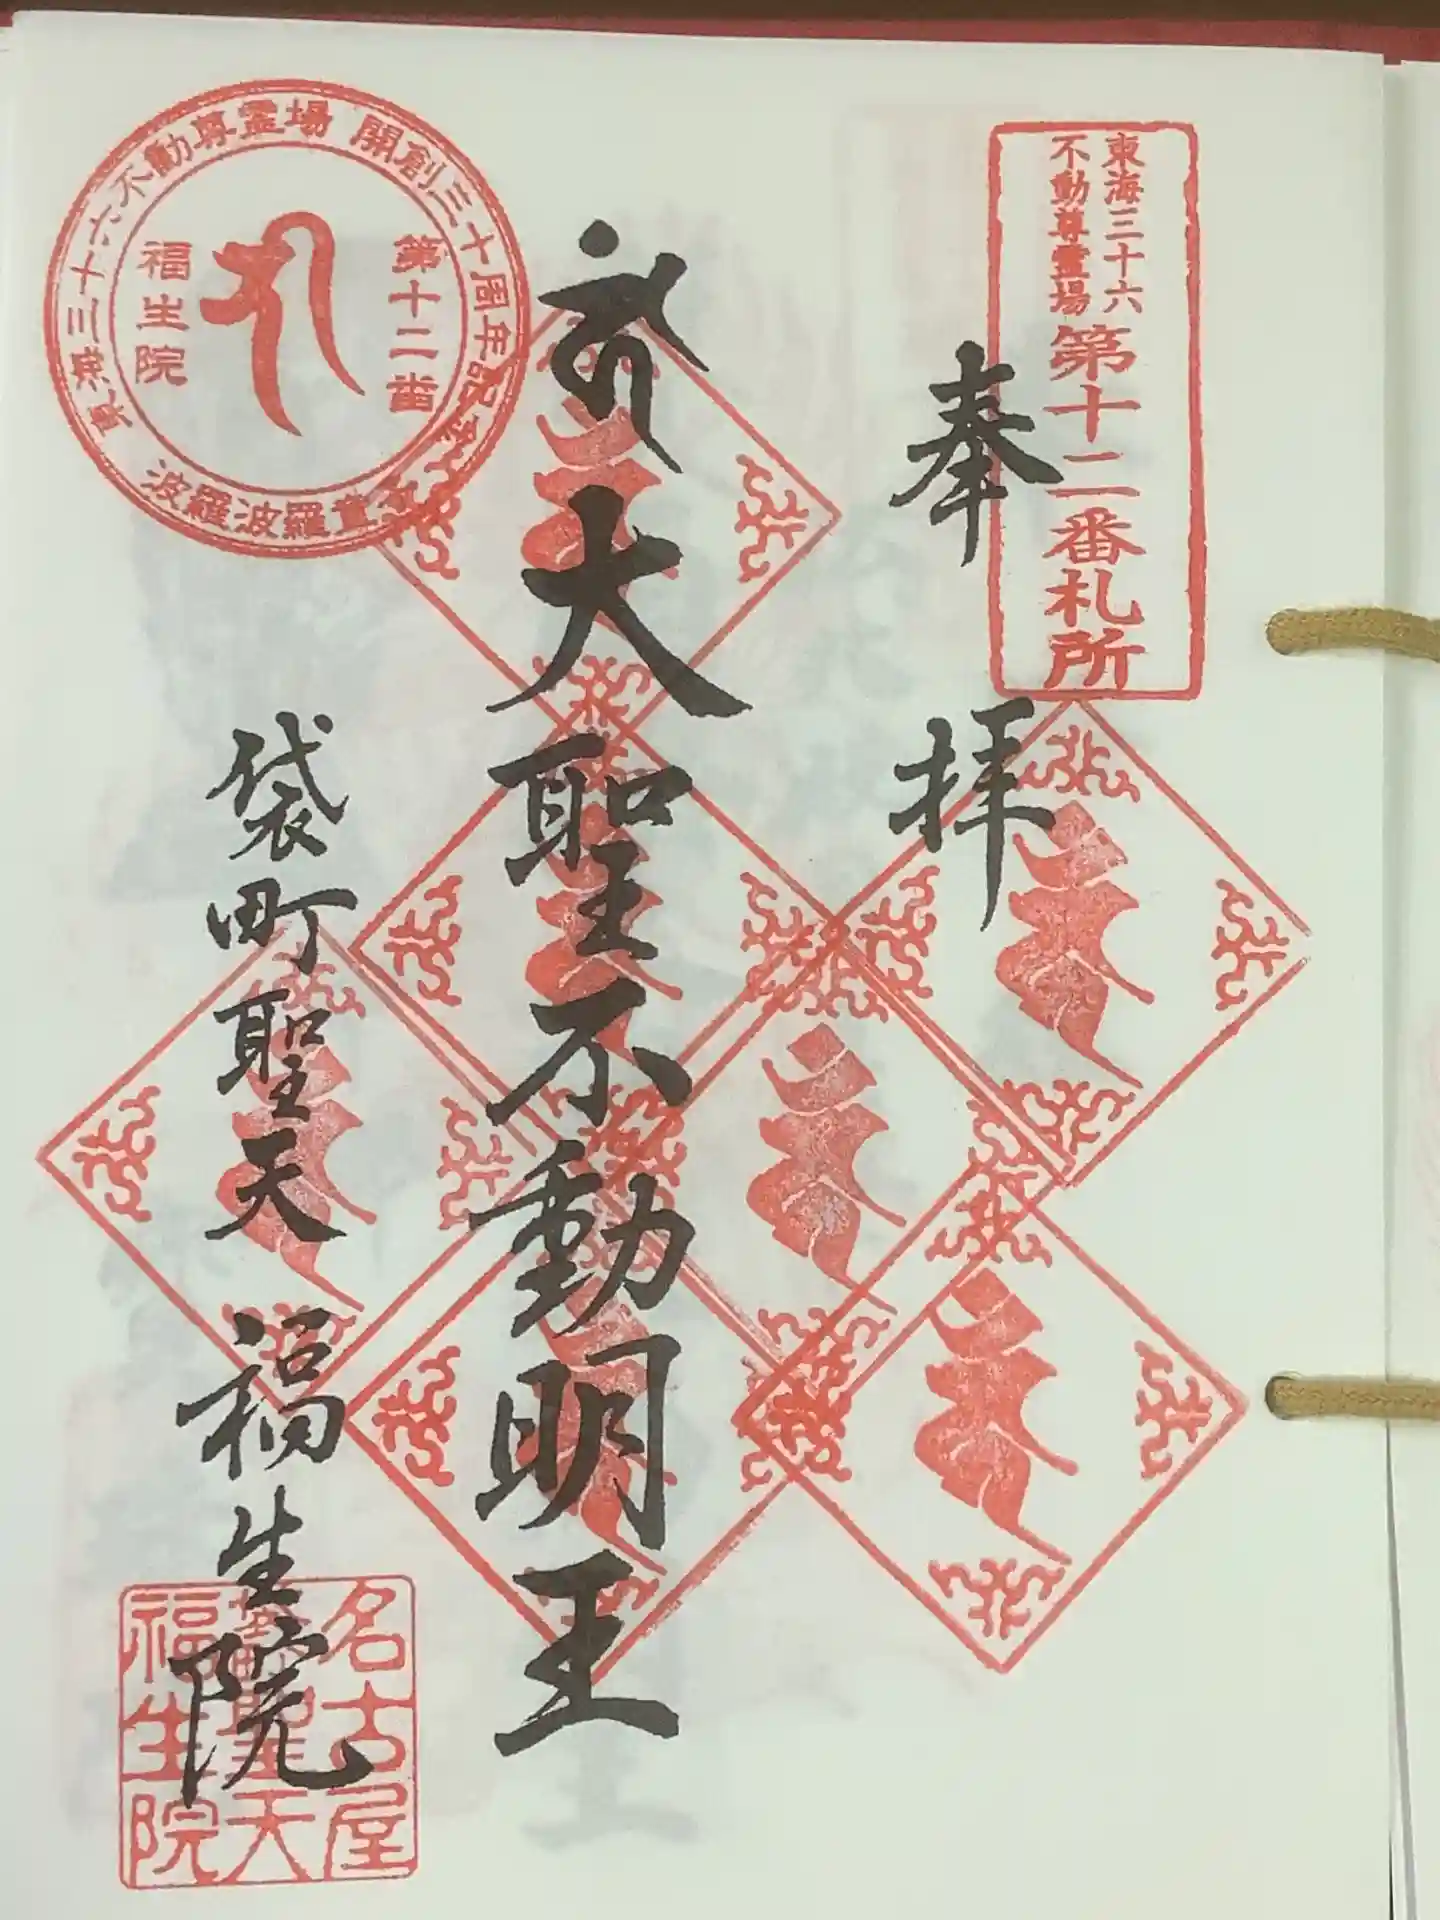 東海三十六
不動尊霊場
第十二番札所
奉拝
大聖不動明王
袋町聖天 福生院
東海三十六不動尊霊場 開創三十周年記念
第十二番
福生院
波羅波羅童子
名古屋
袋町聖天
福生院